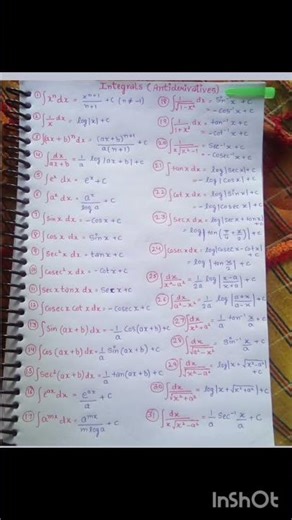 Integrals (antiderivatives)
① ∫xⁿdx = xⁿ⁺¹/n+1 +C (n ≠ -1)
② ∫1/x dx = log|x|+C
③ ∫(ax+b)ⁿdx = (ax+b)ⁿ⁺¹/a(n+1) +C
④ ∫dx/ax+b = 1/a log|ax+b|+C
⑤ ∫eˣdx = eˣ+C
⑥ ∫aˣdx = aˣ/log a +C
⑦ ∫sinx dx = -cosx+C
⑧ ∫cosx dx = sinx+C
⑨ ∫sec²x dx = tanx+C
⑩ ∫cosec²x dx = -cotx+C
⑪ ∫secx tanx dx = secx+C
⑫ ∫cosecx cotx dx = -cosecx+C
⑬ ∫sin(ax+b)dx = -1/a cos(ax+b)+C
⑭ ∫cos(ax+b)dx = 1/a sin(ax+b)+C
⑮ ∫sec²(ax+b)dx = 1/a tan(ax+b)+C
⑯ ∫eᵃˣdx = eᵃˣ/a +C
⑰ ∫aᵐˣdx = aᵐˣ/m log a +C
⑱ ∫1/√1-x² dx = sin⁻¹x+C
= -cos⁻¹x+C
⑲ ∫1/1+x² dx = tan⁻¹x+C
= -cot⁻¹x+C
⑳ ∫1/x√x²-1 = sec⁻¹x+C
= -cosec⁻¹x+C
21 ∫tanx dx = log|secx|+C
= -log|cosx|+C
22 ∫cotx dx = log|sinx|+C
= -log|cosecx|+C
23 ∫secx dx = log|secx+tanx|+C
= log|tan(π/4+x/2)|+C
24 ∫cosecx dx = log|cosecx-cotx|+C
= log|tan x/2|+C
dx/x²-a² = 1/2a log|x-a/x+a|+C
26 ∫dx/a²-x² = 1/2a log|a+x/a-x|+C
27 = 1/a tan⁻¹x/a+C
28 = sin⁻¹x/a+C
29 ∫dx/√x²-a² = log|x+√x²-a²|+C
30 ∫dx/√x²+a² = log|x+√x²+a²|+C
31 ∫dx/x√x²-a² = 1/a sec⁻¹x/a+C
InShOt